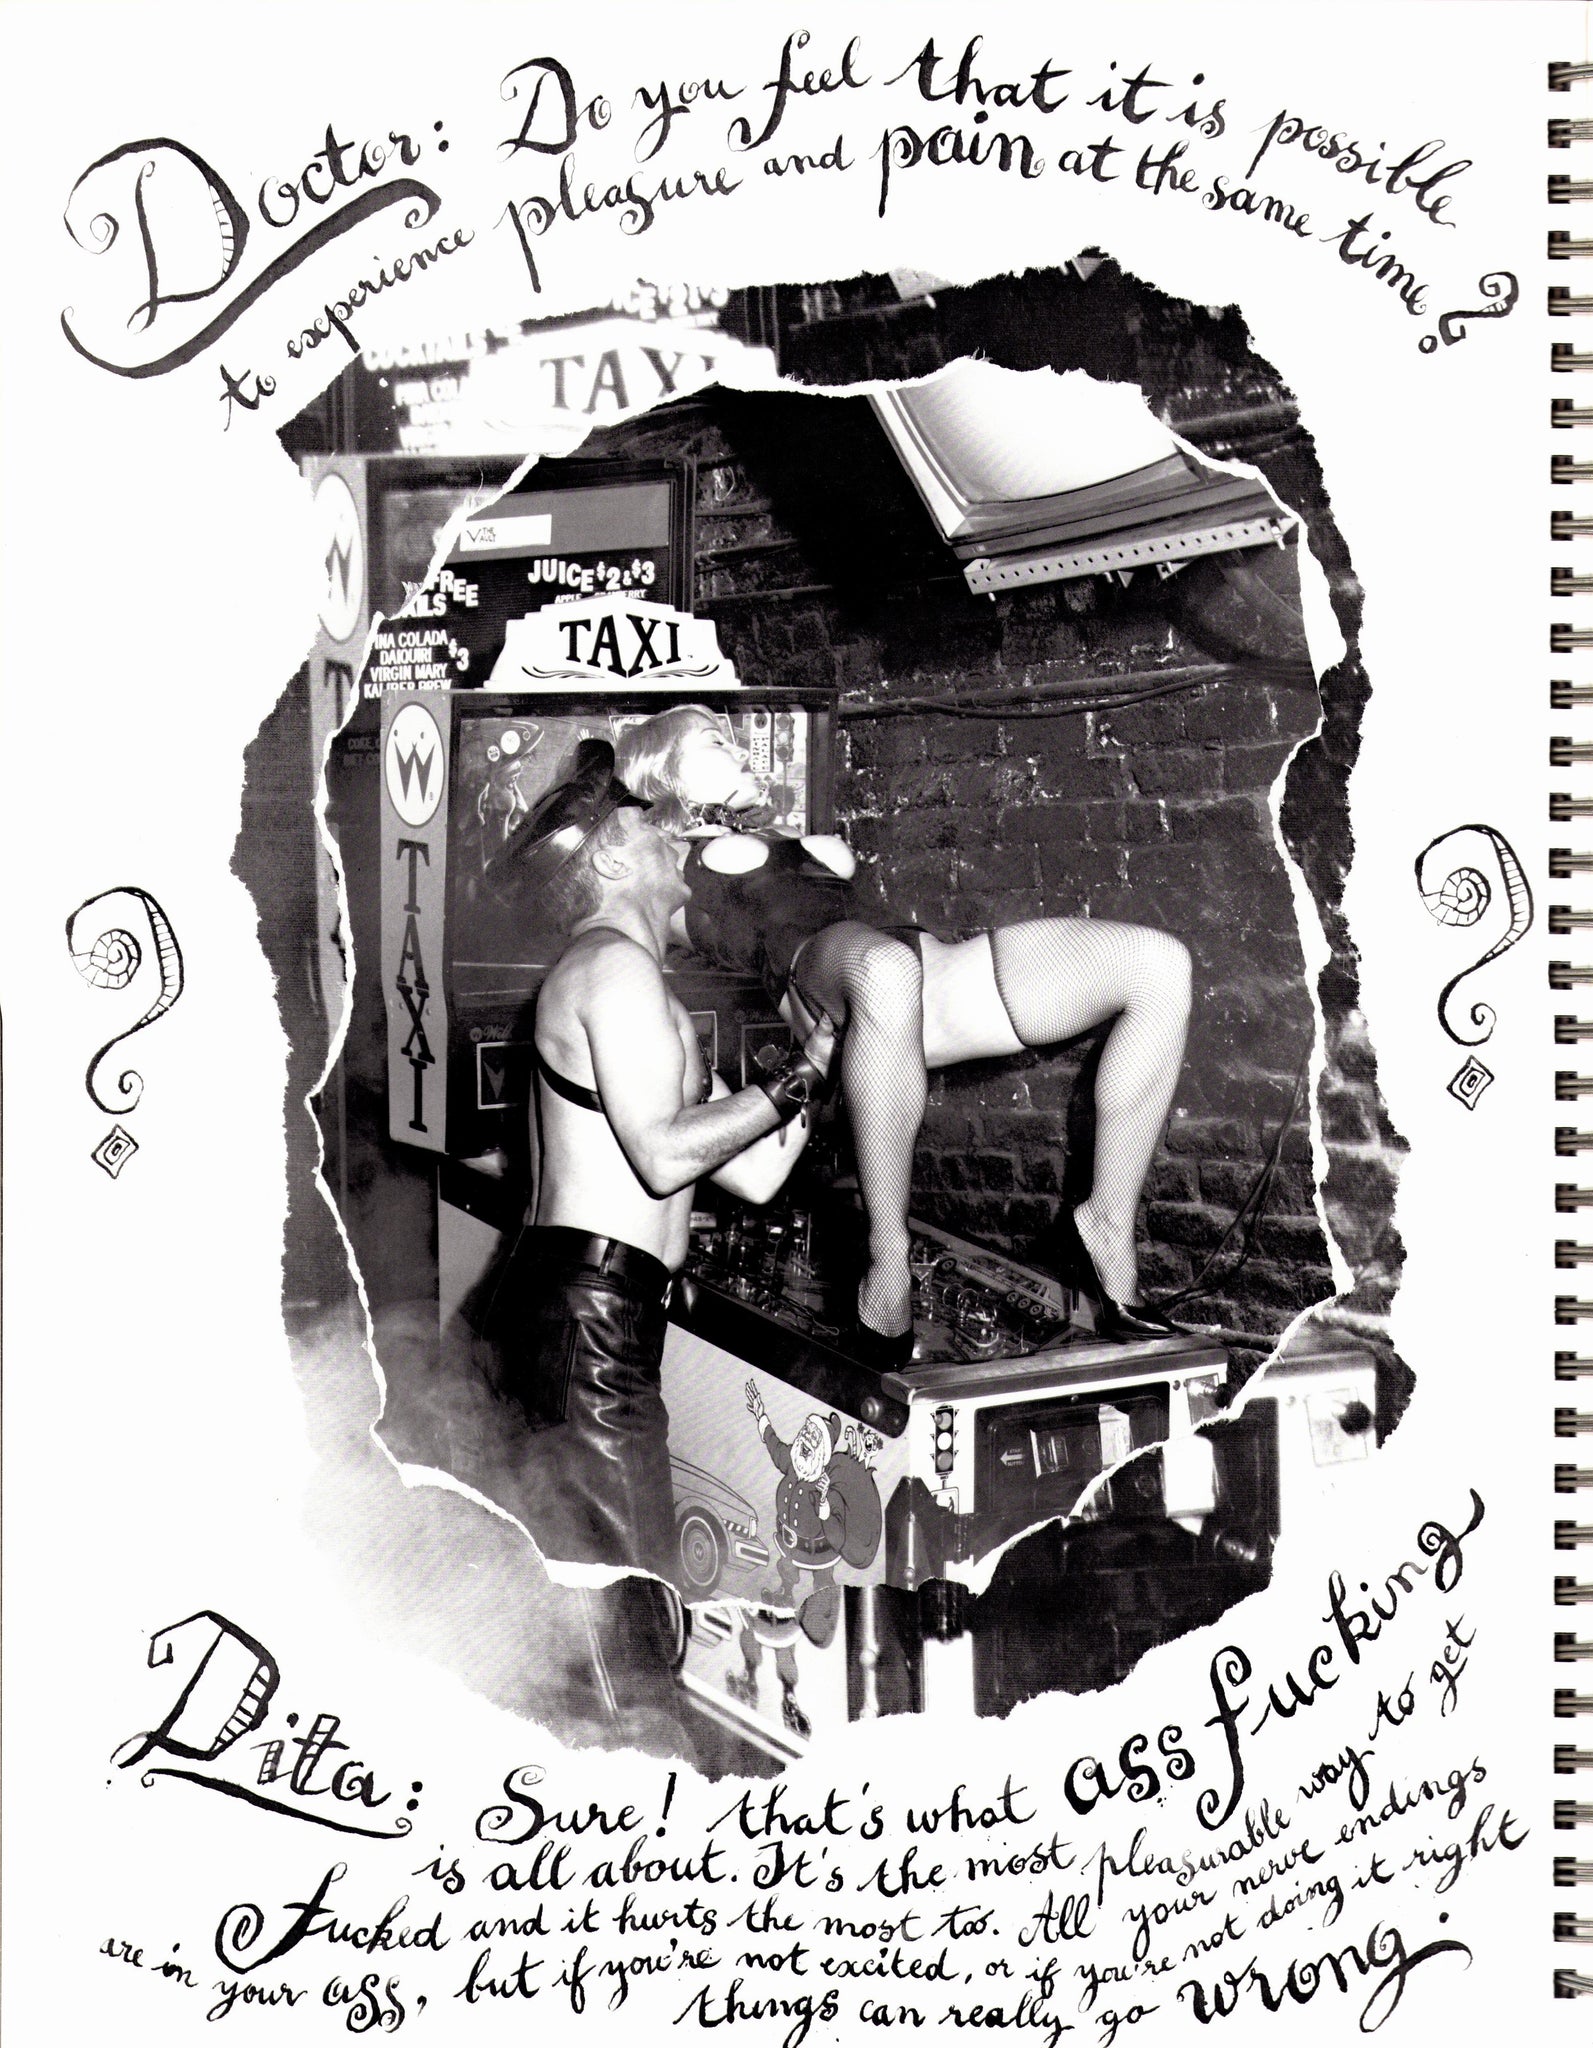 Doctor: Do you feel that it is possible
to experience pleasure and pain at the same time?
COCKTAILS
TAXI
W
THE
VAULT
FREE
JUICE $2 & $3
TAXI
INA COLADA
DAIQUIRI $3
VIRGIN MARY
KALIBER BREW
W
TAXI
Dita: Sure! that's what ass fucking
is all about. It's the most pleasurable way to get
fucked and it hurts the most too. All your nerve endings
are in your ass, but if you're not excited, or if you're not doing it right
things can really go wrong.